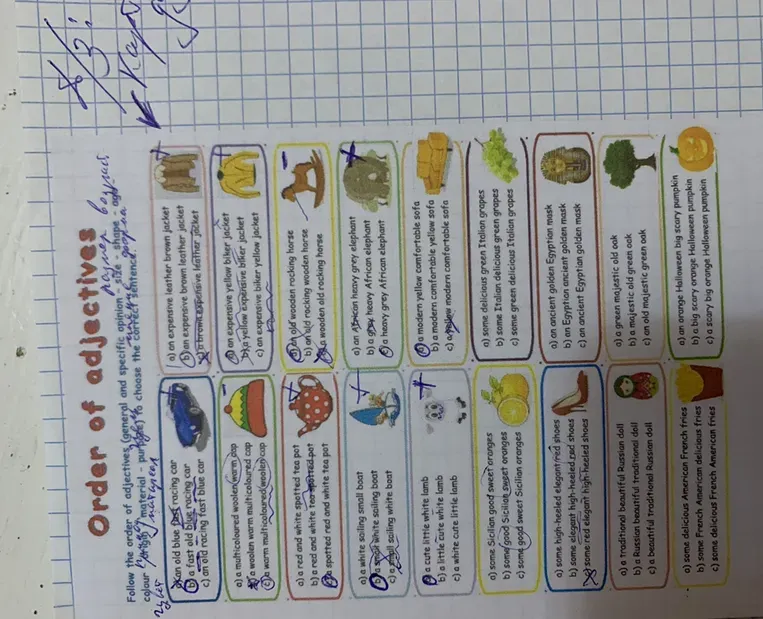 Order of adjectives
Follow the order of adjectives (general and specific opinion - size - shape - age -
colour - origin - material - purpose) to choose the correct sentence.
a) an old blue fast racing car
b) a fast old blue racing car
c) an old racing fast blue car
a) an expensive leather brown jacket
b) an expensive brown leather jacket
c) a brown expensive leather jacket
a) a multicoloured woolen warm cap
b) a woolen warm multicoloured cap
c) a warm multicoloured woolen cap
a) an expensive yellow biker jacket
b) a yellow expensive biker jacket
c) an expensive biker yellow jacket
a) a red and white spotted tea pot
b) a red and white tea spotted pot
c) a spotted red and white tea pot
a) an old wooden rocking horse
b) an old rocking wooden horse
c) a wooden old rocking horse
a) a white sailing small boat
b) a small white sailing boat
c) a small sailing white boat
a) an African heavy grey elephant
b) a grey heavy African elephant
c) a heavy grey African elephant
a) a cute little white lamb
b) a little cute white lamb
c) a white cute little lamb
a) a modern yellow comfortable sofa
b) a modern comfortable yellow sofa
c) a yellow modern comfortable sofa
a) some Sicilian good sweet oranges
b) some good Sicilian sweet oranges
c) some good sweet Sicilian oranges
a) some delicious green Italian grapes
b) some Italian delicious green grapes
c) some green delicious Italian grapes
a) some high-heeled elegant red shoes
b) some elegant high-heeled red shoes
c) some red elegant high-heeled shoes
a) an ancient golden Egyptian mask
b) an Egyptian ancient golden mask
c) an ancient Egyptian golden mask
a) a traditional beautiful Russian doll
b) a Russian beautiful traditional doll
c) a beautiful traditional Russian doll
a) a green majestic old oak
b) a majestic old green oak
c) an old majestic green oak
a) some delicious American French fries
b) some French American delicious fries
c) some delicious French American fries
a) an orange Halloween big scary pumpkin
b) a big scary orange Halloween pumpkin
c) a scary big orange Halloween pumpkin